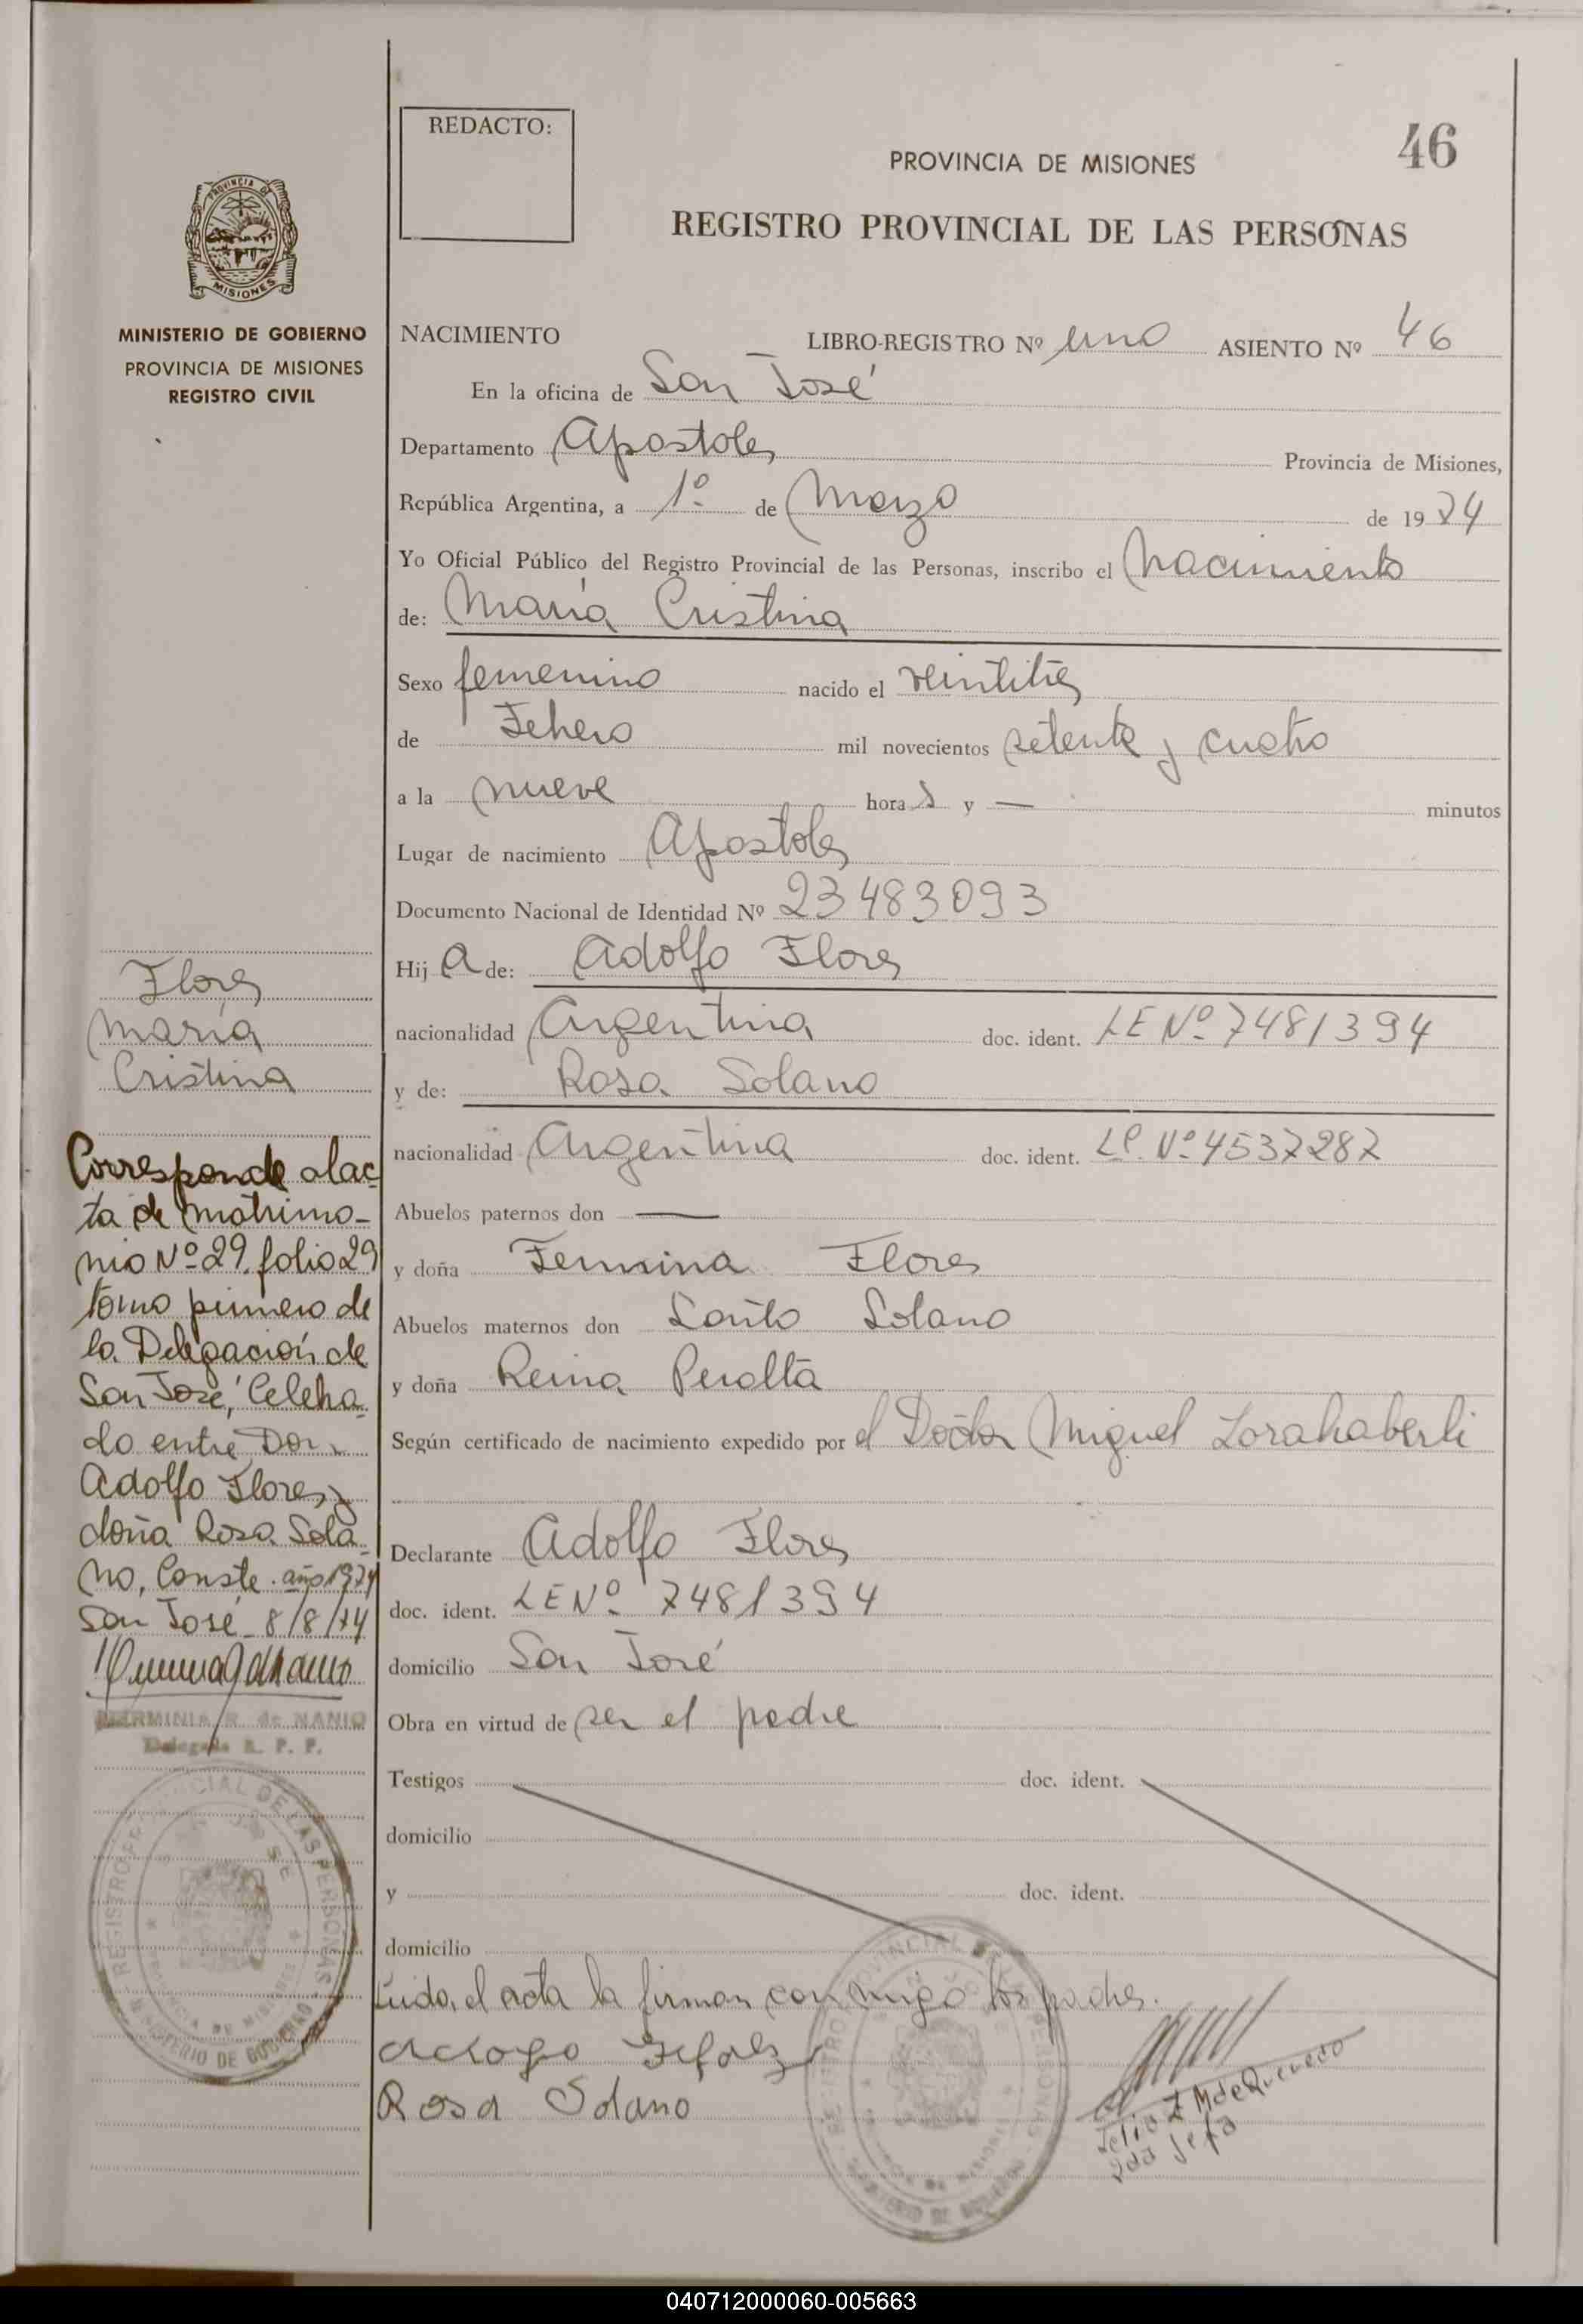 REDACTO:
46
PROVINCIA DE MISIONES
REGISTRO PROVINCIAL DE LAS PERSONAS
PROVINCIA DE
MISIONES
MINISTERIO DE GOBIERNO
PROVINCIA DE MISIONES
REGISTRO CIVIL
NACIMIENTO LIBRO-REGISTRO Nº uno ASIENTO Nº 46
En la oficina de San José
Departamento Apostoles Provincia de Misiones,
República Argentina, a 1º de Marzo de 1974
Yo Oficial Público del Registro Provincial de las Personas, inscribo el Nacimiento
de: María Cristina
Sexo femenino nacido el veintitres
de Febero mil novecientos setenta y cuatro
a la nueve hora s y — minutos
Lugar de nacimiento Apostoles
Documento Nacional de Identidad Nº 23483093
Hij a de: Adolfo Flores
nacionalidad Argentina doc. ident. LE Nº 7481394
y de: Rosa Solano
nacionalidad Argentina doc. ident. Nº 4537287
Abuelos paternos don —
y doña Fermina Flores
Abuelos maternos don Santo Solano
y doña Reina Peralta
Según certificado de nacimiento expedido por el Doctor Miguel
Declarante Adolfo Flores
doc. ident. LE Nº 7481394
domicilio San José
Obra en virtud de ser el padre
Testigos doc. ident.
domicilio
y doc. ident.
domicilio
Leida el acta la firman conmigo los padres.
Rosa Solano
M de Quevedo
2da Jefa
Flores
María
Cristina
Corresponde al ac
ta de Matrimo-
nio Nº 29 folio 29
tomo primero de
la Delegación de
San José, Celebra
do entre Don
Adolfo Flores y
doña Rosa Sola-
no, Conste. año 1974
San José 8/8/74
HERMINIA R. de NANIO
Delegada R. P. P.
REGISTRO PROVINCIAL DE LAS PERSONAS
SAN JOSE
PROVINCIA DE MISIONES
MINISTERIO DE GOBIERNO
REGISTRO PROVINCIAL DE LAS PERSONAS
MINISTERIO DE GOBIERNO
040712000060-005663